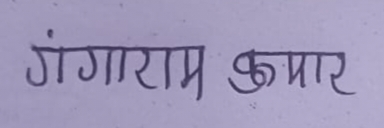 गंगाराम कुमार